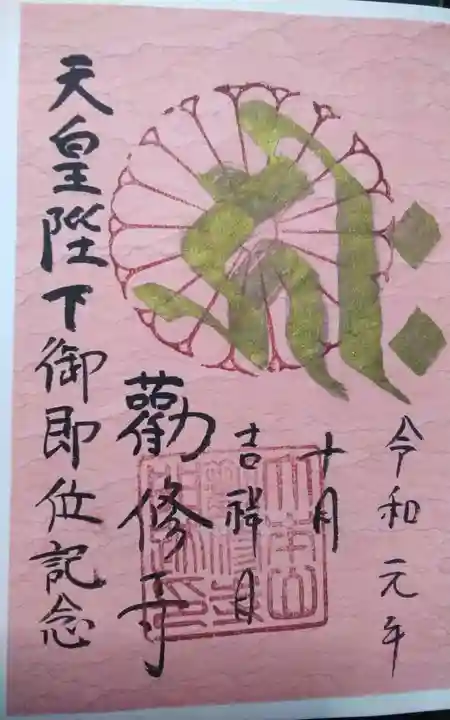 令和元年
十月
吉祥月
勸修寺
天皇陛下御即位記念